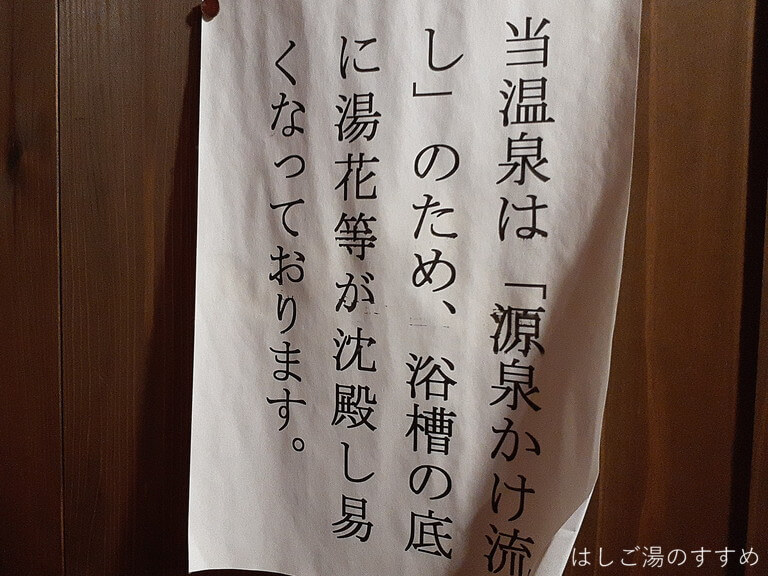 当温泉は「源泉かけ流
し」のため、浴槽の底
に湯花等が沈殿し易
くなっております。
はしご湯のすすめ